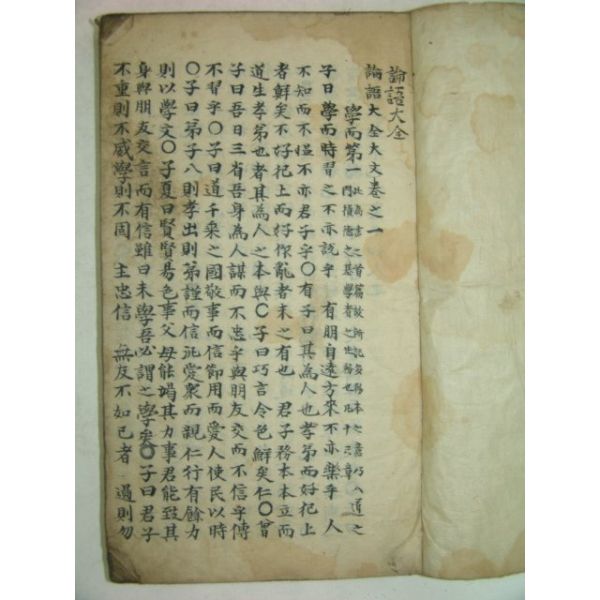 論語大全
論語大全大文卷之一
學而第一 此爲書之首篇故所記多務本之意乃入道之門積德之基學者之先務也凡十六章
子曰學而時習之不亦說乎 有朋自遠方來不亦樂乎 人
不知而不慍不亦君子乎〇有子曰其為人也孝弟而好犯上
者鮮矣不好犯上而好作亂者未之有也 君子務本本立而
道生孝弟也者其為人之本與〇子曰巧言令色鮮矣仁〇曾
子曰吾日三省吾身為人謀而不忠乎與朋友交而不信乎傳
不習乎〇子曰道千乘之國敬事而信節用而愛人使民以時
〇子曰弟子入則孝出則弟謹而信汎愛衆而親仁行有餘力
則以學文〇子夏曰賢賢易色事父母能竭其力事君能致其
身與朋友交言而有信雖曰未學吾必謂之學矣〇子曰君子
不重則不威學則不固 主忠信 無友不如己者 過則勿